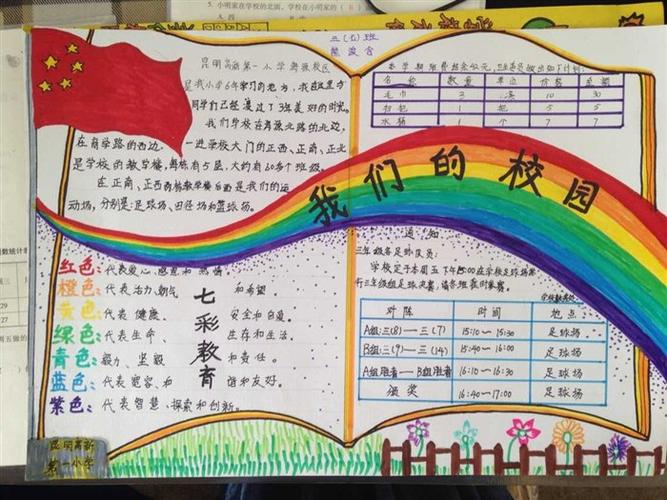 5. 小明家在学校的北面，小明家在学校的（
三（6）班
昆明高新第一小学
是我小学6年学习的地方，我在这里
同学们已经渡过了3年美好的时光。
我们学校在海源北路的北边，
在商学路的西边。一进学校大门的正西、正南、正北
是学校的教学楼，每栋有5层，大约有60多个班级。
在正南、正西两栋教学楼后面是我们的运
动场，分别是：足球场、田径场和篮球场。
本学期班费结余42元，卫生委员做出如下计划：
名称 数量 单位 价格 总额
毛巾 3 条 10 30
扫把 1 把 5 5
水桶 1 个 7 7
我们的校园
红色：代表爱心、感恩和热情。
橙色：代表活力、朝气和希望。
黄色：代表健康、安全和自爱。
绿色：代表生命、生存和生活。
青色：毅力、坚毅和责任。
蓝色：代表宽容、和谐和友好。
紫色：代表智慧、探索和创新。
七彩教育
通知
三年级各足球队员：
学校定于本周五下午15:00在学校足球场举
行三年级组足球决赛，请各班准时参赛。
对阵 时间 地点
A组：三(8)—三(7) 15:10～15:30 足球场
B组：三(9)—三(14) 15:40～16:00 足球场
A组胜者—B组胜者 16:10～16:30 足球场
颁奖 16:40～17:00 足球场
昆明高新
第一小学